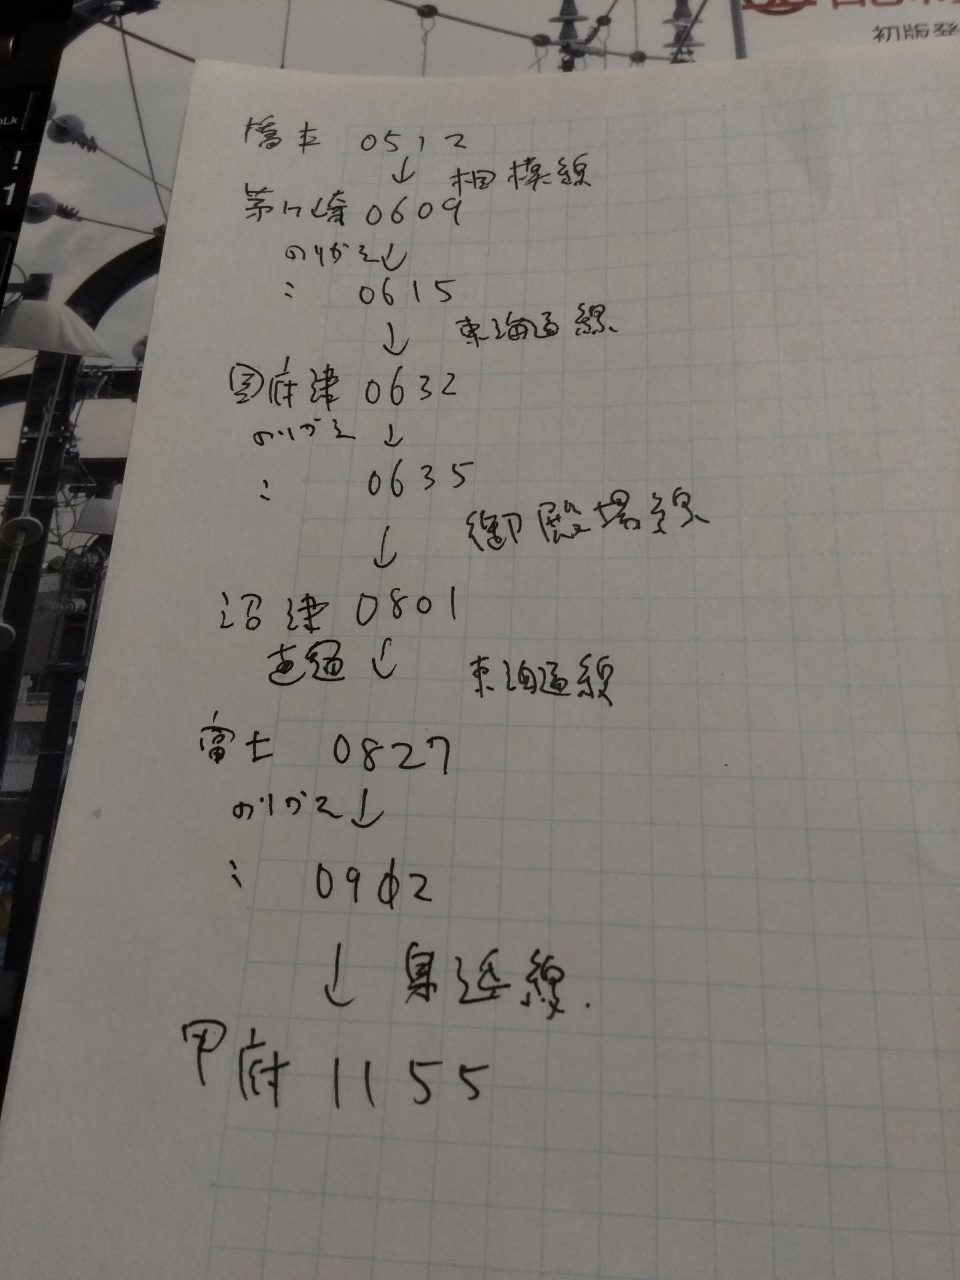 初版発
!
1
橋本 0512
↓ 相模線
茅ヶ崎 0609
のりかえ ↓
: 0615
↓ 東海道線
国府津 0632
のりかえ ↓
: 0635
↓ 御殿場線
沼津 0801
直通 ↓ 東海道線
富士 0827
のりかえ ↓
: 0902
↓ 身延線
甲府 1155